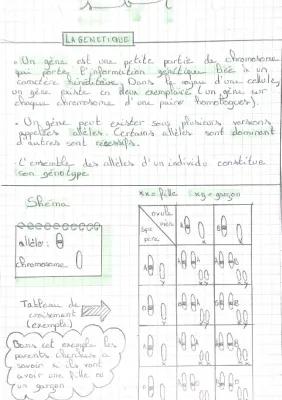 LA GENETIQUE
• Un gène est une petite partie de chromosome
qui porte l'information génétique liée à un
caractère héréditaire. Dans le noyau d'une cellule,
un gène existe en deux exemplaires (un gène sur
chaque chromosome d'une paire homologues).
• Un gène peut exister sous plusieurs versions
appelées allèles. Certains allèles sont dominant
d'autres sont récessifs.
• L'ensemble des allèles d'un individu constitue
son génotype
Shéma
xx= fille xy= garçon
allèle:
chromosome
ovule
mère
père
Tableau de
croisement
(exemple)
Dans cet exemple les
parents cherchent à
savoir si ils vont
avoir une fille ou
un garçon